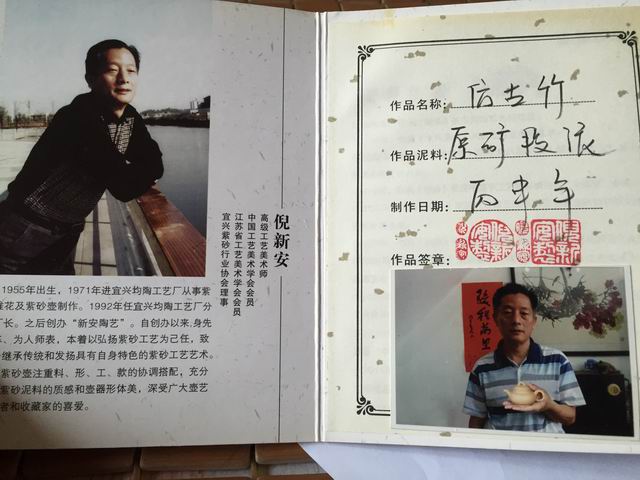 倪新安
高级工艺美术师
中国工艺美术学会会员
江苏省工艺美术学会会员
宜兴紫砂行业协会理事
1955年出生，1971年进宜兴均陶工艺厂从事紫
雕花及紫砂壶制作。1992年任宜兴均陶工艺厂分
厂长。之后创办“新安陶艺”。自创办以来,身先
、为人师表，本着以弘扬紫砂工艺为己任，致
继承传统和发扬具有自身特色的紫砂工艺艺术。
紫砂壶注重料、形、工、款的协调搭配，充分
紫砂泥料的质感和壶器形体美，深受广大壶艺
者和收藏家的喜爱。
作品名称：仿古竹
作品泥料：原矿段泥
制作日期：丙申年
作品签章：